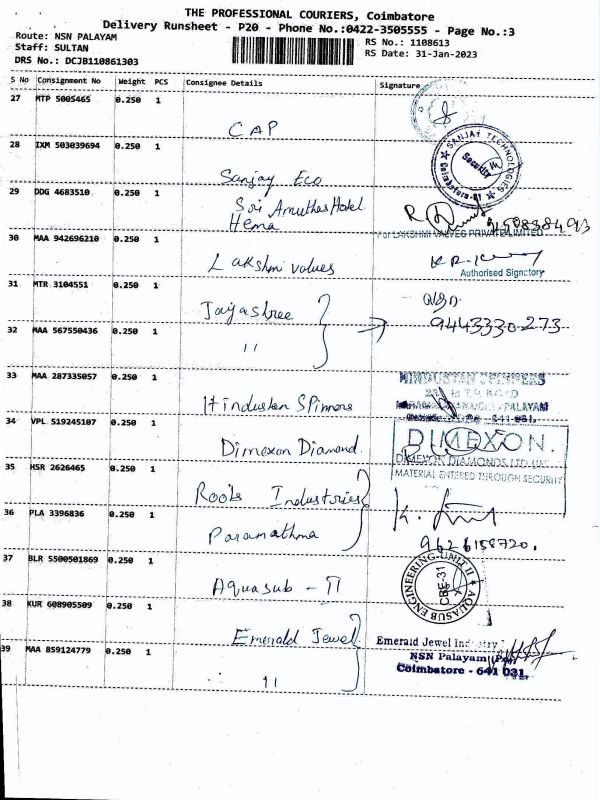 THE PROFESSIONAL COURIERS, Coimbatore
Delivery Runsheet - P20 - Phone No.:0422-3505555 - Page No.:3
Route: NSN PALAYAM
Staff: SULTAN
DRS No.: DCJB110861303
RS No.: 1108613
RS Date: 31-Jan-2023
S No Consignment No Weight PCS Consignee Details Signature
27 MTP 5005465 0.250 1
CAP
28 IXM 503039694 0.250 1
SANJAY TECHNOLOGIES
Security
Coimbatore-31
Sanjay Eco
29 DDG 4683510 0.250 1
Sri Amuthas Hotel
Hema
30 MAA 942696210 0.250 1
For LAKSHMI VALVES PRIVATE LIMITED
Lakshmi values
Authorised Signatory
31 MTR 3104551 0.250 1
Jayashree
9443330273
32 MAA 567550436 0.250 1
"
33 MAA 287335057 0.250 1
Hindustan Spinners
34 VPL 519245107 0.250 1
DIMEXON
Dimexon Diamond
MATERIAL ENTERED THROUGH SECURITY
35 HSR 2626465 0.250 1
Roots Industries
36 PLA 3396836 0.250 1
Paramathma
9626158720.
37 BLR 5500501869 0.250 1
AQUASUB ENGINEERING-UNIT II
CBE-31
Aquasub - II
38 KUR 608905509 0.250 1
Emerald Jewel
Emerald Jewel Industry
39 MAA 859124779 0.250 1
NSN Palayam (Po)
Coimbatore - 641 031.
"